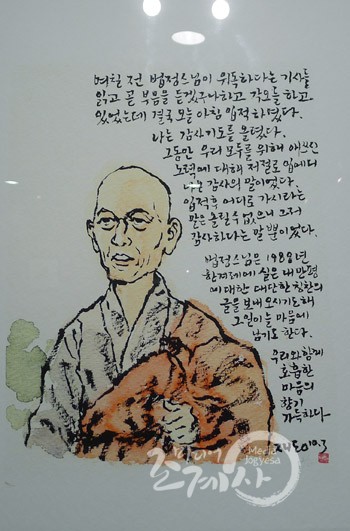 며칠 전 법정스님이 위독하다는 기사를
읽고 곧 부음을 듣겠구나하고 각오를 하고
있었는데 결국 오늘 아침 입적하셨다.
나는 감사기도를 올렸다.
그동안 우리 모두를 위해 애쓰신
노력에 대해 저절로 입에서
나온 감사의 말이었다.
입적후 어디로 가시라는
말은 올릴 수 없으니 그저
감사하다는 말 뿐이었다.
법정스님은 1988년
한겨레에 실은 내 만평
에 대한 대단한 칭찬의
글을 보내 오시기도 해
그 일이 늘 마음에
남기도 한다.
우리와 함께
호흡한
마음의
향기
가득하다
2010.3
미디어 조계사
Media Jogyesa